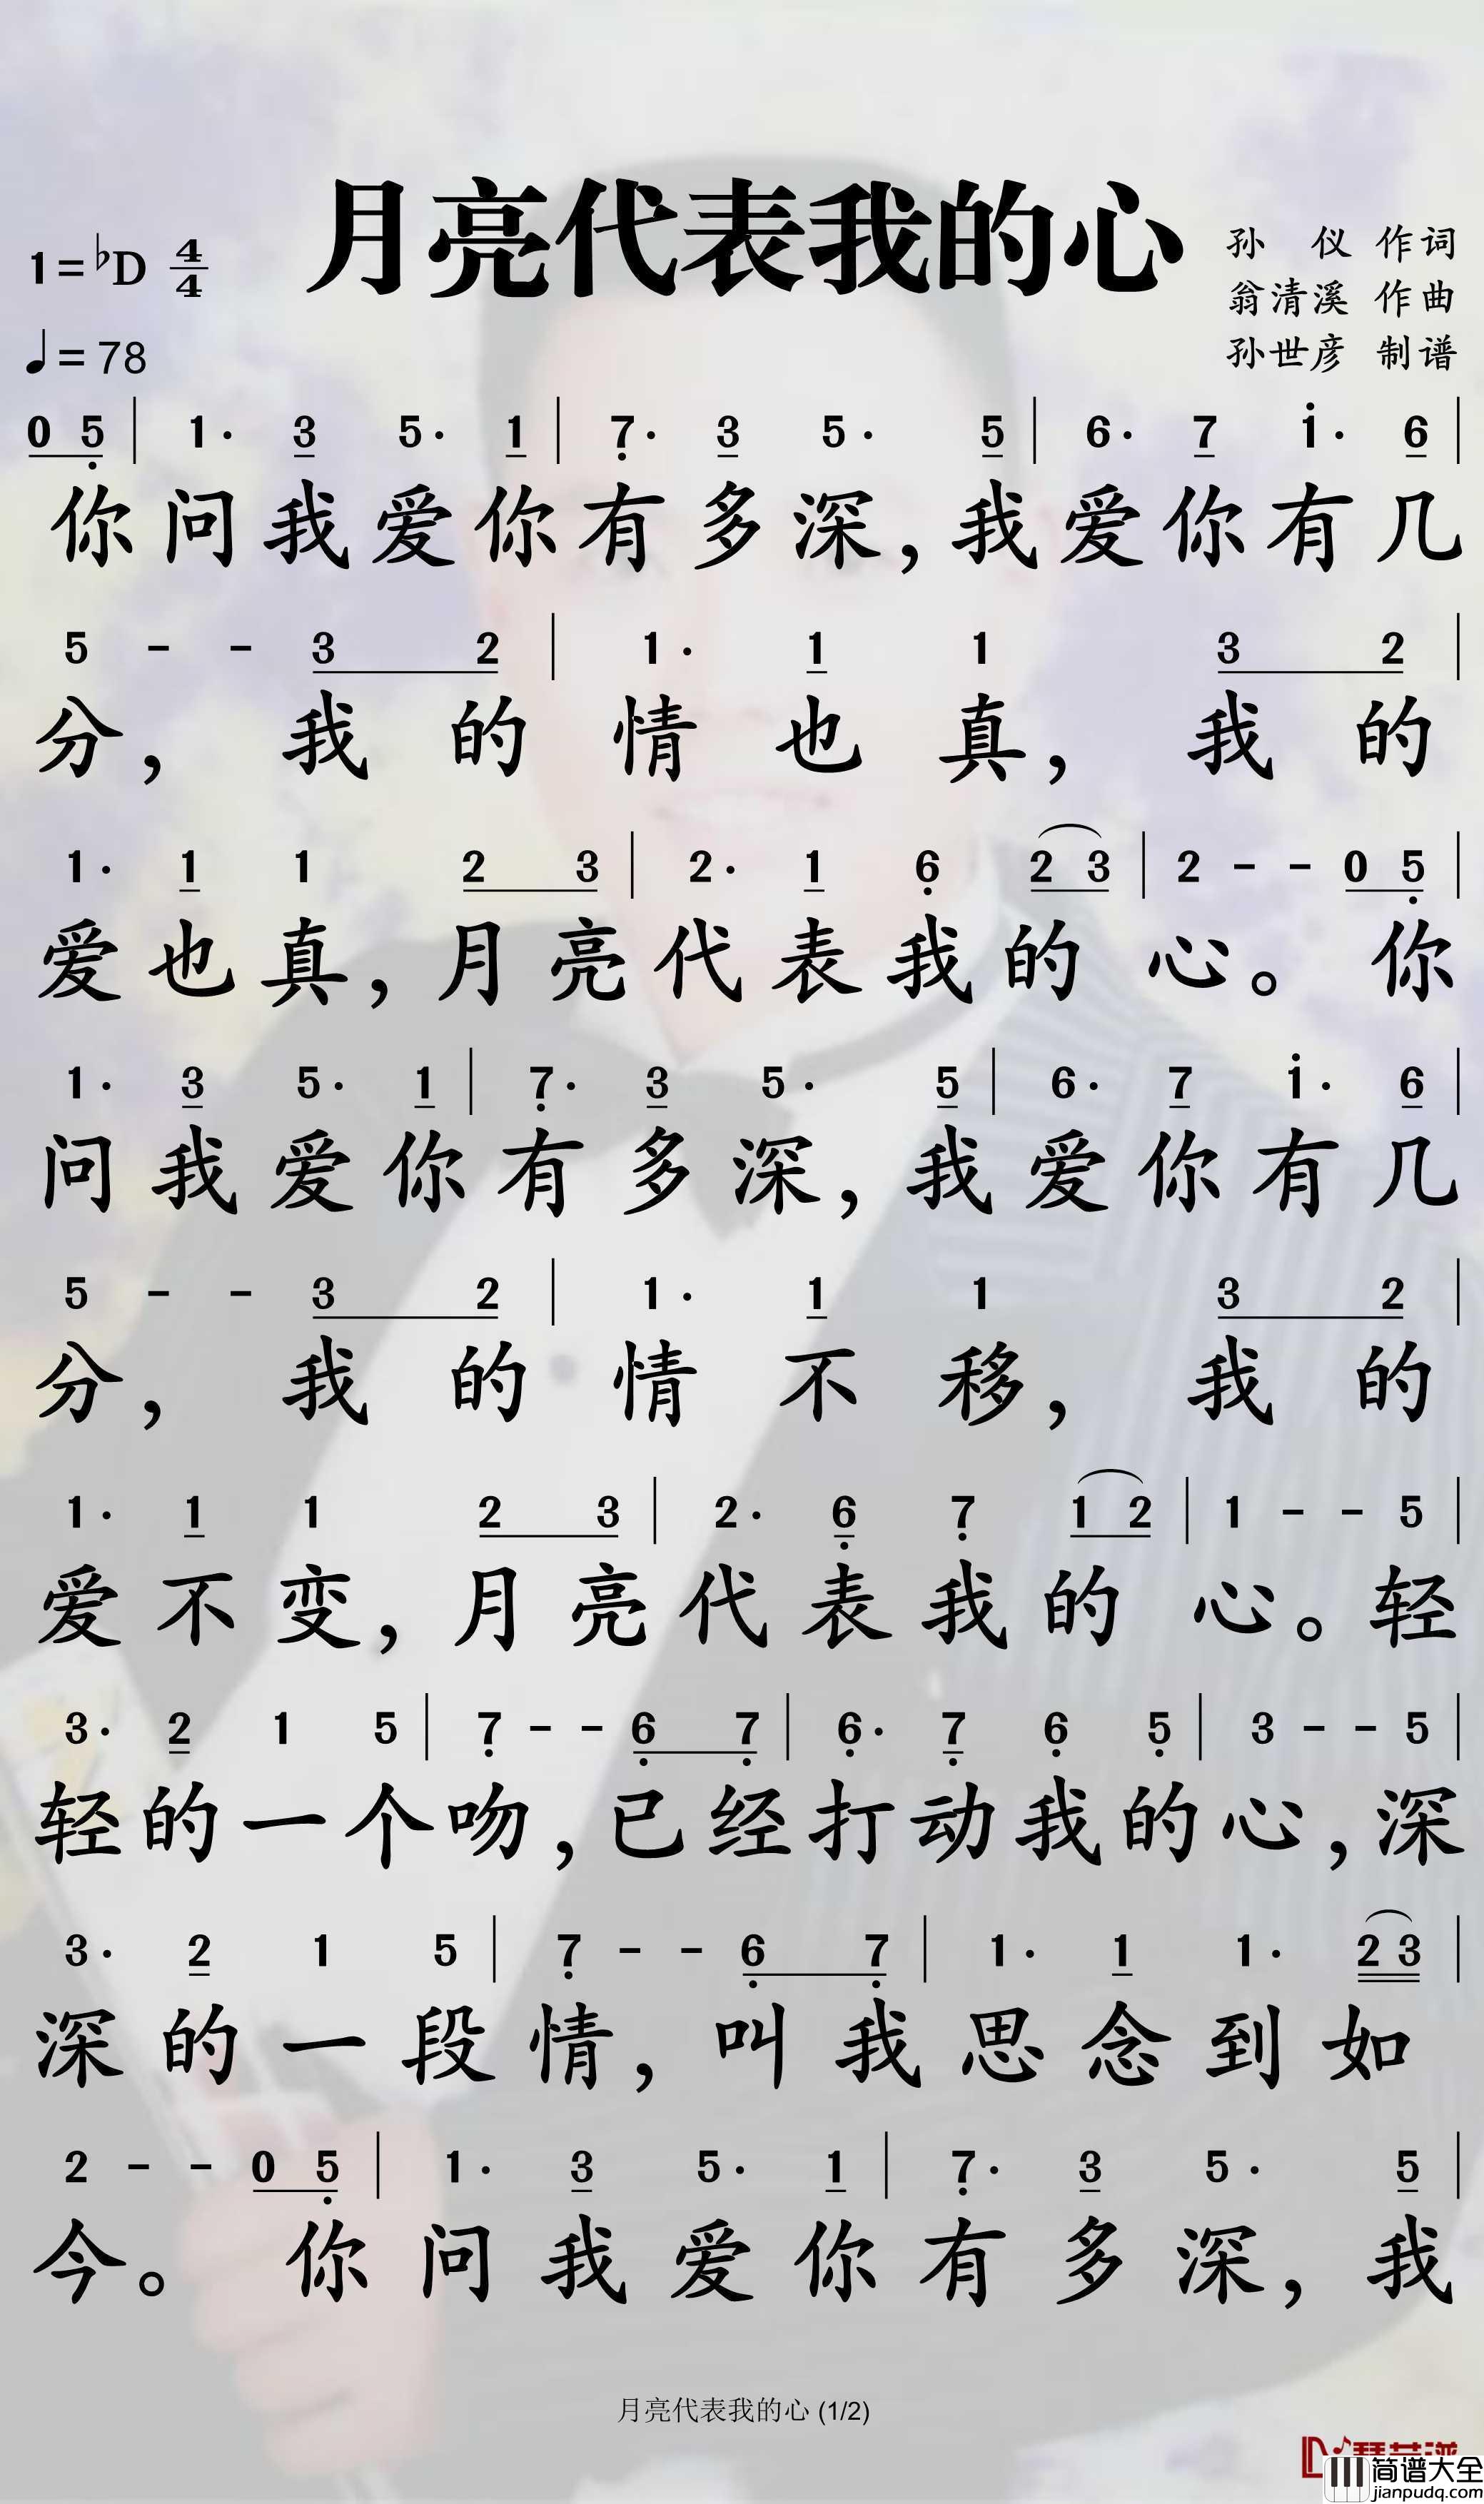 月亮代表我的心
1=♭D 4/4
♩=78
孙 仪 作词
翁清溪 作曲
孙世彦 制谱
0 5̣ | 1· 3 5· 1 | 7̣· 3 5· 5 | 6· 7 1̇· 6 |
你问我爱你有多深，我爱你有几
5 - - 3 2 | 1· 1 1 3 2 |
分，我的情也真，我的
1· 1 1 2 3 | 2· 1 6̣ 2 3 | 2 - - 0 5̣ |
爱也真，月亮代表我的心。你
1· 3 5· 1 | 7̣· 3 5· 5 | 6· 7 1̇· 6 |
问我爱你有多深，我爱你有几
5 - - 3 2 | 1· 1 1 3 2 |
分，我的情不移，我的
1· 1 1 2 3 | 2· 6̣ 7̣ 1 2 | 1 - - 5 |
爱不变，月亮代表我的心。轻
3· 2 1 5 | 7̣ - - 6̣ 7̣ | 6̣· 7̣ 6̣ 5̣ | 3 - - 5 |
轻的一个吻，已经打动我的心，深
3· 2 1 5 | 7̣ - - 6̣ 7̣ | 1· 1 1· 2 3 |
深的一段情，叫我思念到如
2 - - 0 5̣ | 1· 3 5· 1 | 7̣· 3 5· 5 |
今。你问我爱你有多深，我
月亮代表我的心 (1/2)
简谱大全
jianpudq.com